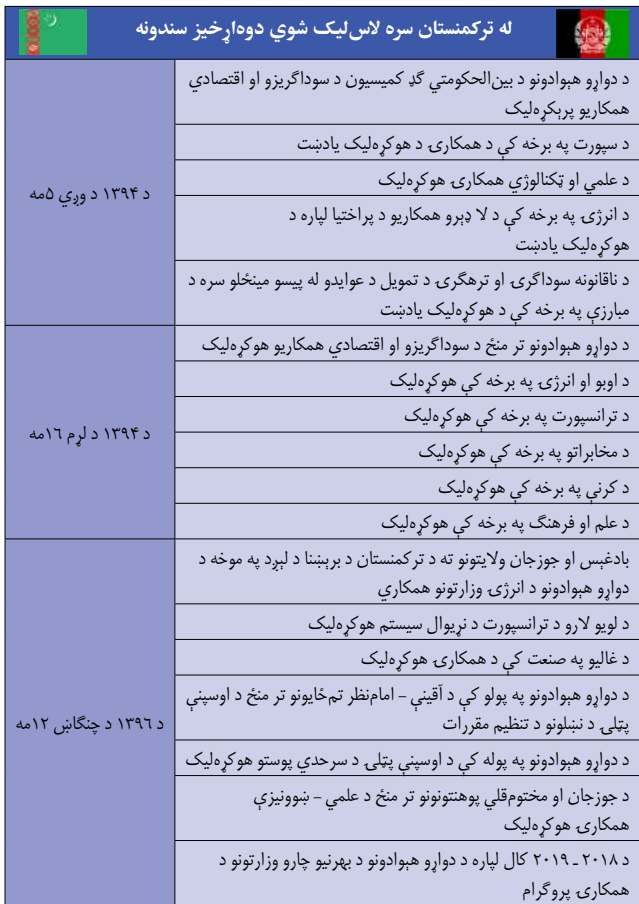 له ترکمنستان سره لاس‌لیک شوي دوه‌اړخیز سندونه
د ۱۳۹۴ د وري ۵مه
د دواړو هېوادونو د بین‌الحکومتي ګډ کمیسیون د سوداګریزو او اقتصادي
همکاریو پرېکړه‌لیک
د سپورت په برخه کې د همکارۍ د هوکړه‌لیک یادښت
د علمي او ټکنالوژي همکارۍ هوکړه‌لیک
د انرژۍ په برخه کې د لا ډېرو همکاریو د پراختیا لپاره د
هوکړه‌لیک یادښت
د ناقانونه سوداګرۍ او ترهګرۍ د تمویل د عوایدو له پیسو مینځلو سره د
مبارزې په برخه کې د هوکړه‌لیک یادښت
د ۱۳۹۴ د لړم ۱٦مه
د دواړو هېوادونو تر منځ د سوداګریزو او اقتصادي همکاریو هوکړه‌لیک
د اوبو او انرژۍ په برخه کې هوکړه‌لیک
د ترانسپورت په برخه کې هوکړه‌لیک
د مخابراتو په برخه کې هوکړه‌لیک
د کرنې په برخه کې هوکړه‌لیک
د علم او فرهنګ په برخه کې هوکړه‌لیک
د ۱۳۹٦ د چنګاښ ۱۲مه
بادغېس او جوزجان ولایتونو ته د ترکمنستان د برېښنا د لېږد په موخه د
دواړو هېوادونو د انرژۍ وزارتونو همکاري
د لویو لارو د ترانسپورت د نړیوال سیستم هوکړه‌لیک
د غالیو په صنعت کې د همکارۍ هوکړه‌لیک
د دواړو هېوادونو په پولو کې د آقینې – امام‌نظر تم‌ځایونو تر منځ د اوسپنې
پټلۍ د نښلونو د تنظیم مقررات
د دواړو هېوادونو په پوله کې د اوسپنې پټلۍ د سرحدي پوستو هوکړه‌لیک
د جوزجان او مختوم‌قلي پوهنتونونو تر منځ د علمي – ښوونیزې
همکارۍ هوکړه‌لیک
د ۲۰۱۸ ـ ۲۰۱۹ کال لپاره د دواړو هېوادونو د بهرنیو چارو وزارتونو د
همکارۍ پروګرام